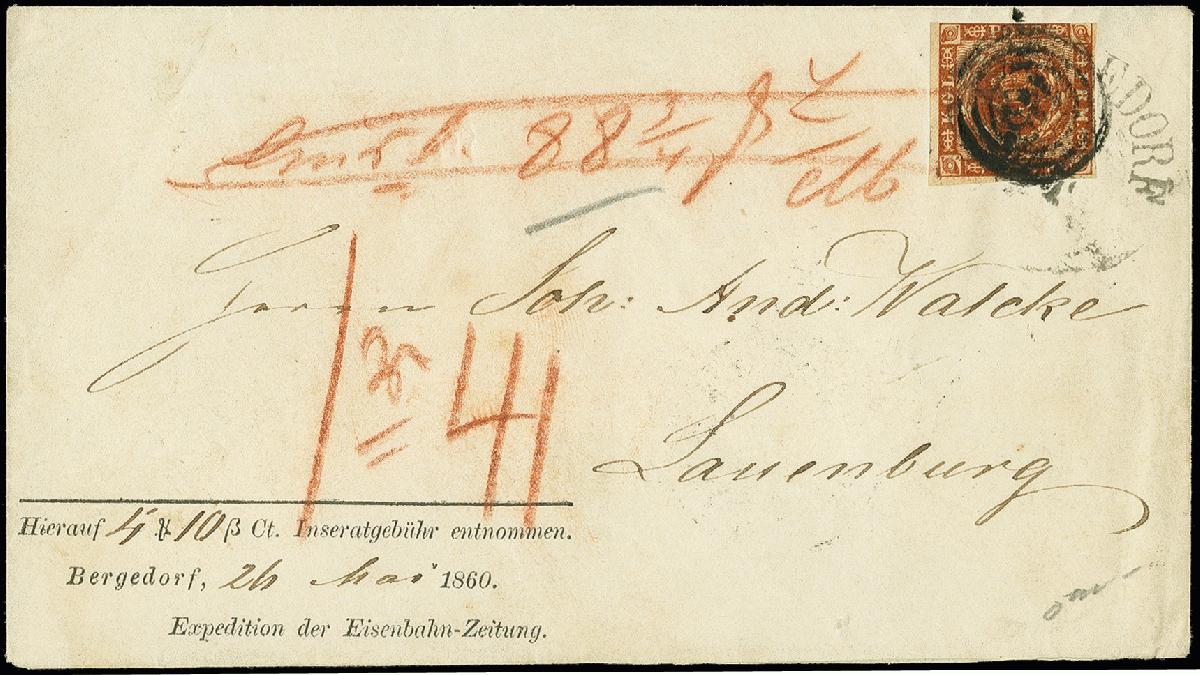 88 3/4
EDORF
Herrn Joh: And: Walcke
Lauenburg
41
Hierauf 4 10 β Ct. Inseratgebühr entnommen.
Bergedorf, 26 Mai 1860.
Expedition der Eisenbahn-Zeitung.